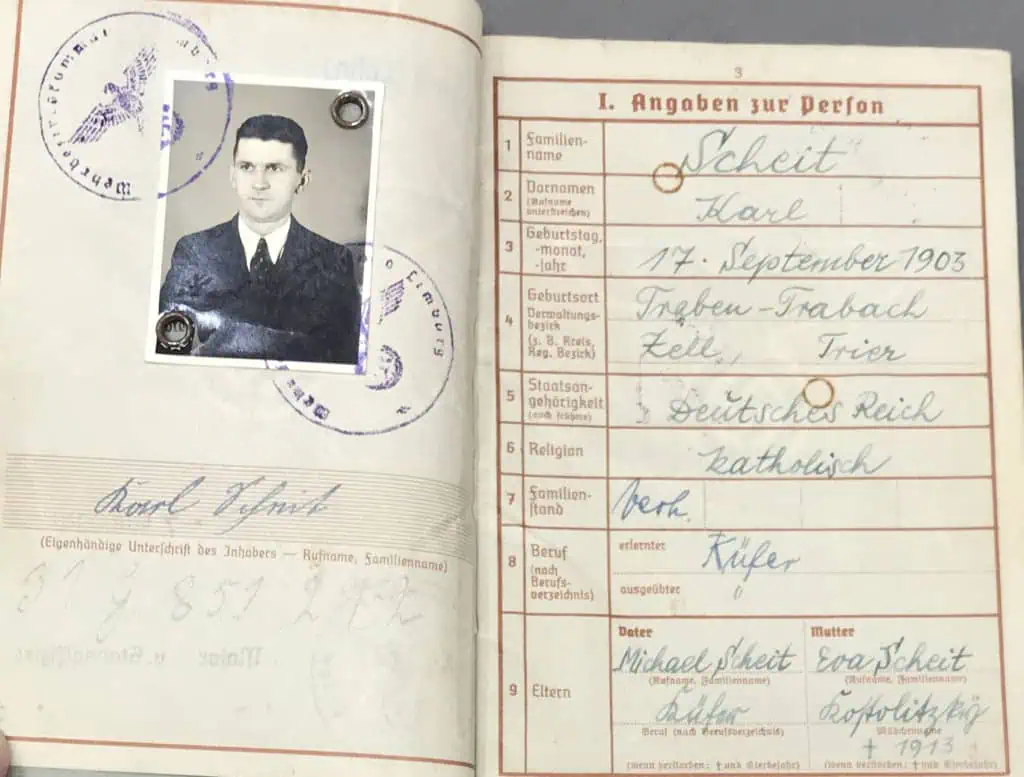 Wehrbezirkskommando Limburg
Limburg
Karl Scheit
(Eigenhändige Unterschrift des Inhabers — Rufname, Familienname)
3
I. Angaben zur Person
1 Familien-
name
Scheit
2 Vornamen
(Rufname
unterstreichen)
Karl
3 Geburtstag,
-monat,
-jahr
17. September 1903
4 Geburtsort
Verwaltungs-
bezirk
(z. B. Kreis,
Reg. Bezirk)
Traben-Trabach
Zell, Trier
5 Staatsan-
gehörigkeit
(auch frühere)
Deutsches Reich
6 Religion
katholisch
7 Familien-
stand
verh.
8 Beruf
(nach
Berufs-
verzeichnis)
erlernter
Küfer
ausgeübter
"
9 Eltern
Vater
Michael Scheit
(Rufname, Familienname)
Küfer
Beruf (nach Berufsverzeichnis)
(wenn verstorben: † und Sterbejahr)
Mutter
Eva Scheit
(Rufname, Familienname)
Kostolitzky
Mädchenname
† 1913
(wenn verstorben: † und Sterbejahr)